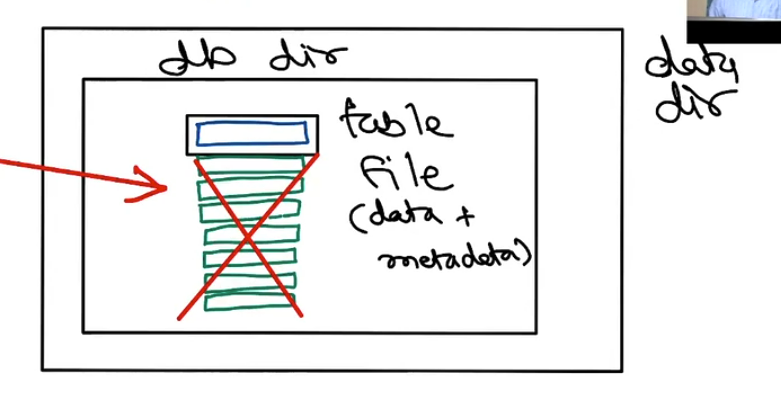 db dir
data
dir
table
file
(data +
metadata)